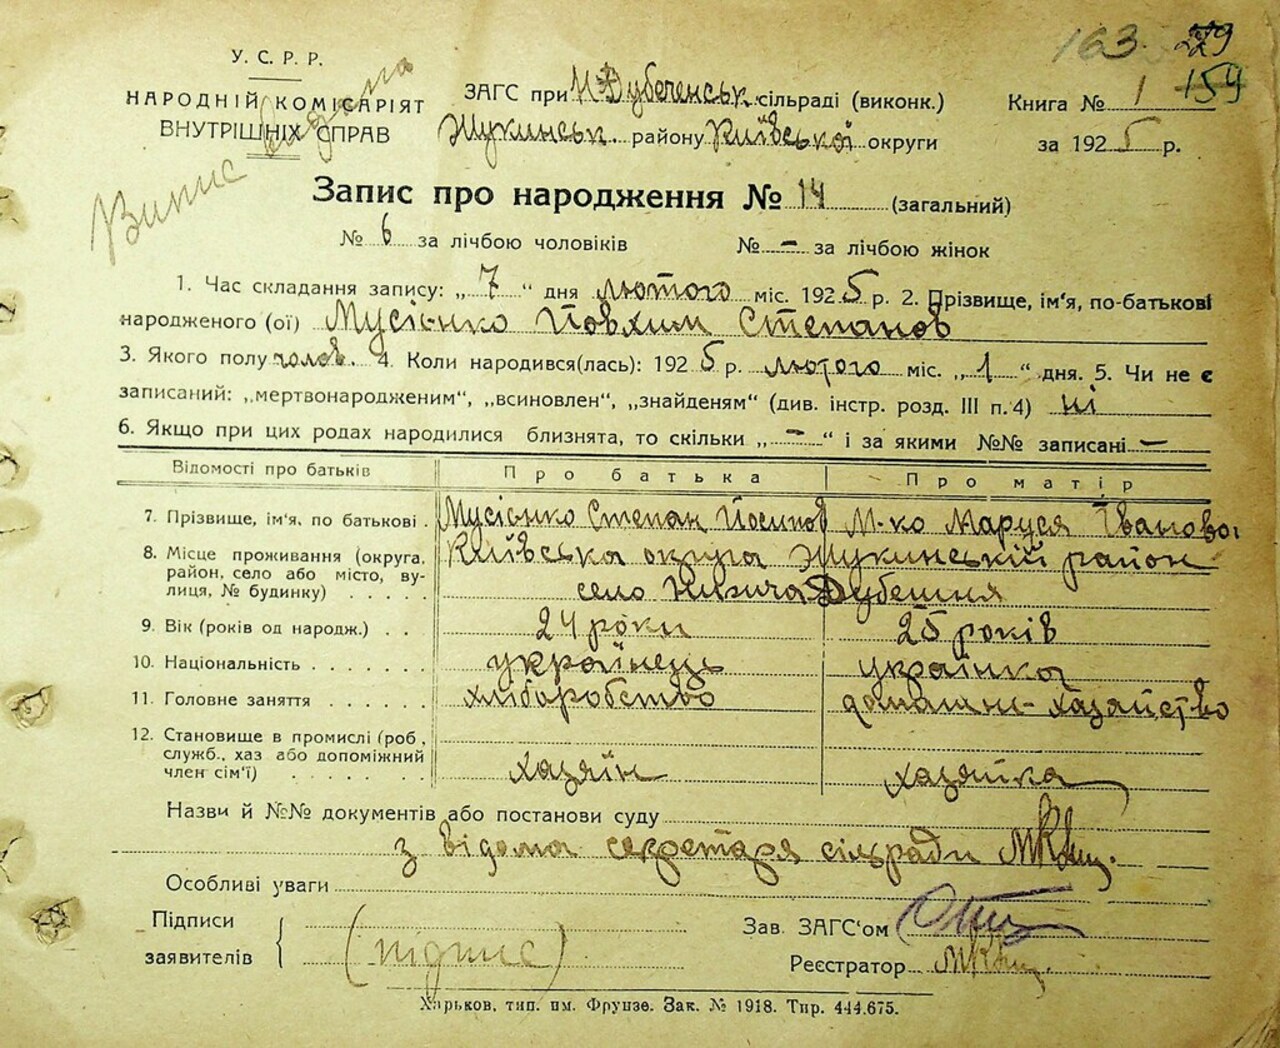 163. 229
У. С. Р. Р.
НАРОДНІЙ КОМІСАРІЯТ
ВНУТРІШНІХ СПРАВ
Випис видана
ЗАГС при Н-Дубеченськ. сільраді (виконк.)
Жукинськ. району Київської округи
Книга № 1 154
за 1925 р.
Запис про народження № 14 (загальний)
№ 6 за лічбою чоловіків № – за лічбою жінок
1. Час складання запису: „7“ дня лютого міс. 1925 р. 2. Прізвище, ім'я, по-батькові
народженого (ої) Мусієнко Йовхим Степанов
3. Якого полу чолов. 4. Коли народився(лась): 1925 р. лютого міс. „1“ дня. 5. Чи не є
записаний: „мертвонародженим“, „всиновлен“, „знайденям“ (див. інстр. розд. III п. 4) ні
6. Якщо при цих родах народилися близнята, то скільки „–“ і за якими №№ записані –
Відомості про батьків Про батька Про матір
7. Прізвище, ім'я, по батькові. Мусієнко Степан Йосипов М-ко Маруся Іванова
8. Місце проживання (округа, Київська округа Жукинській район
район, село або місто, ву-
лиця, № будинку) . . . . . село Нижча Дубешня
9. Вік (років од народж.) . . 24 роки 25 років
10. Національність . . . . . . . українець українка
11. Головне заняття . . . . . . хліборобство домашнє хазяйство
12. Становище в промислі (роб.,
служб., хаз або допоміжний
член сім'ї) . . . . . . . хазяїн хазяйка
Назви й №№ документів або постанови суду
з відома секретаря сільради
Особливі уваги
Підписи
заявителів (підпис)
Зав. ЗАГС'ом
Реєстратор
Харьков, тип. им. Фрунзе. Зак. № 1918. Тир. 444.675.